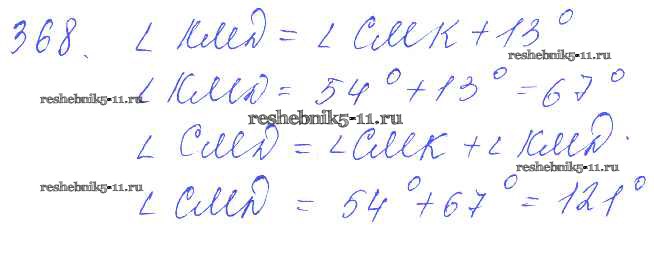 368. ∠ KMD = ∠ CMK + 13°
reshebnik5-11.ru
∠ KMD = 54° + 13° = 67°
reshebnik5-11.ru
reshebnik5-11.ru
∠ CMD = ∠ CMK + ∠ KMD.
reshebnik5-11.ru
reshebnik5-11.ru
∠ CMD = 54° + 67° = 121°